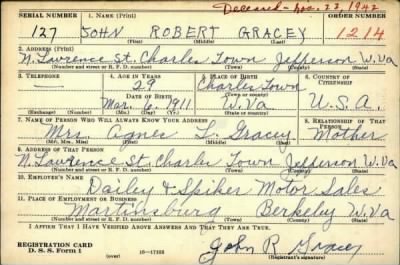 Deceased - Nov. 23, 1942
SERIAL NUMBER 1. NAME (Print) ORDER NUMBER
127 JOHN ROBERT GRACEY 1214
(First) (Middle) (Last)
2. ADDRESS (Print)
N. Lawrence St. Charles Town Jefferson W.Va
(Number and street or R. F. D. number) (Town) (County) (State)
3. TELEPHONE 4. AGE IN YEARS 5. PLACE OF BIRTH 6. COUNTRY OF CITIZENSHIP
— 29 Charles Town
DATE OF BIRTH (Town or county)
Mar. 6, 1911 W.Va U.S.A.
(Exchange) (Number) (Mo.) (Day) (Yr.) (State or country)
7. NAME OF PERSON WHO WILL ALWAYS KNOW YOUR ADDRESS 8. RELATIONSHIP OF THAT PERSON
Mrs. Agnes L. Gracey Mother
(Mr., Mrs., Miss) (First) (Middle) (Last)
9. ADDRESS OF THAT PERSON
N. Lawrence St. Charles Town Jefferson W.Va
(Number and street or R. F. D. number) (Town) (County) (State)
10. EMPLOYER'S NAME
Dailey & Spiker Motor Sales
11. PLACE OF EMPLOYMENT OR BUSINESS
Martinsburg Berkeley W.Va
(Number and street or R. F. D. number) (Town) (County) (State)
I AFFIRM THAT I HAVE VERIFIED ABOVE ANSWERS AND THAT THEY ARE TRUE.
REGISTRATION CARD
D. S. S. Form 1 16—17105 John R Gracey